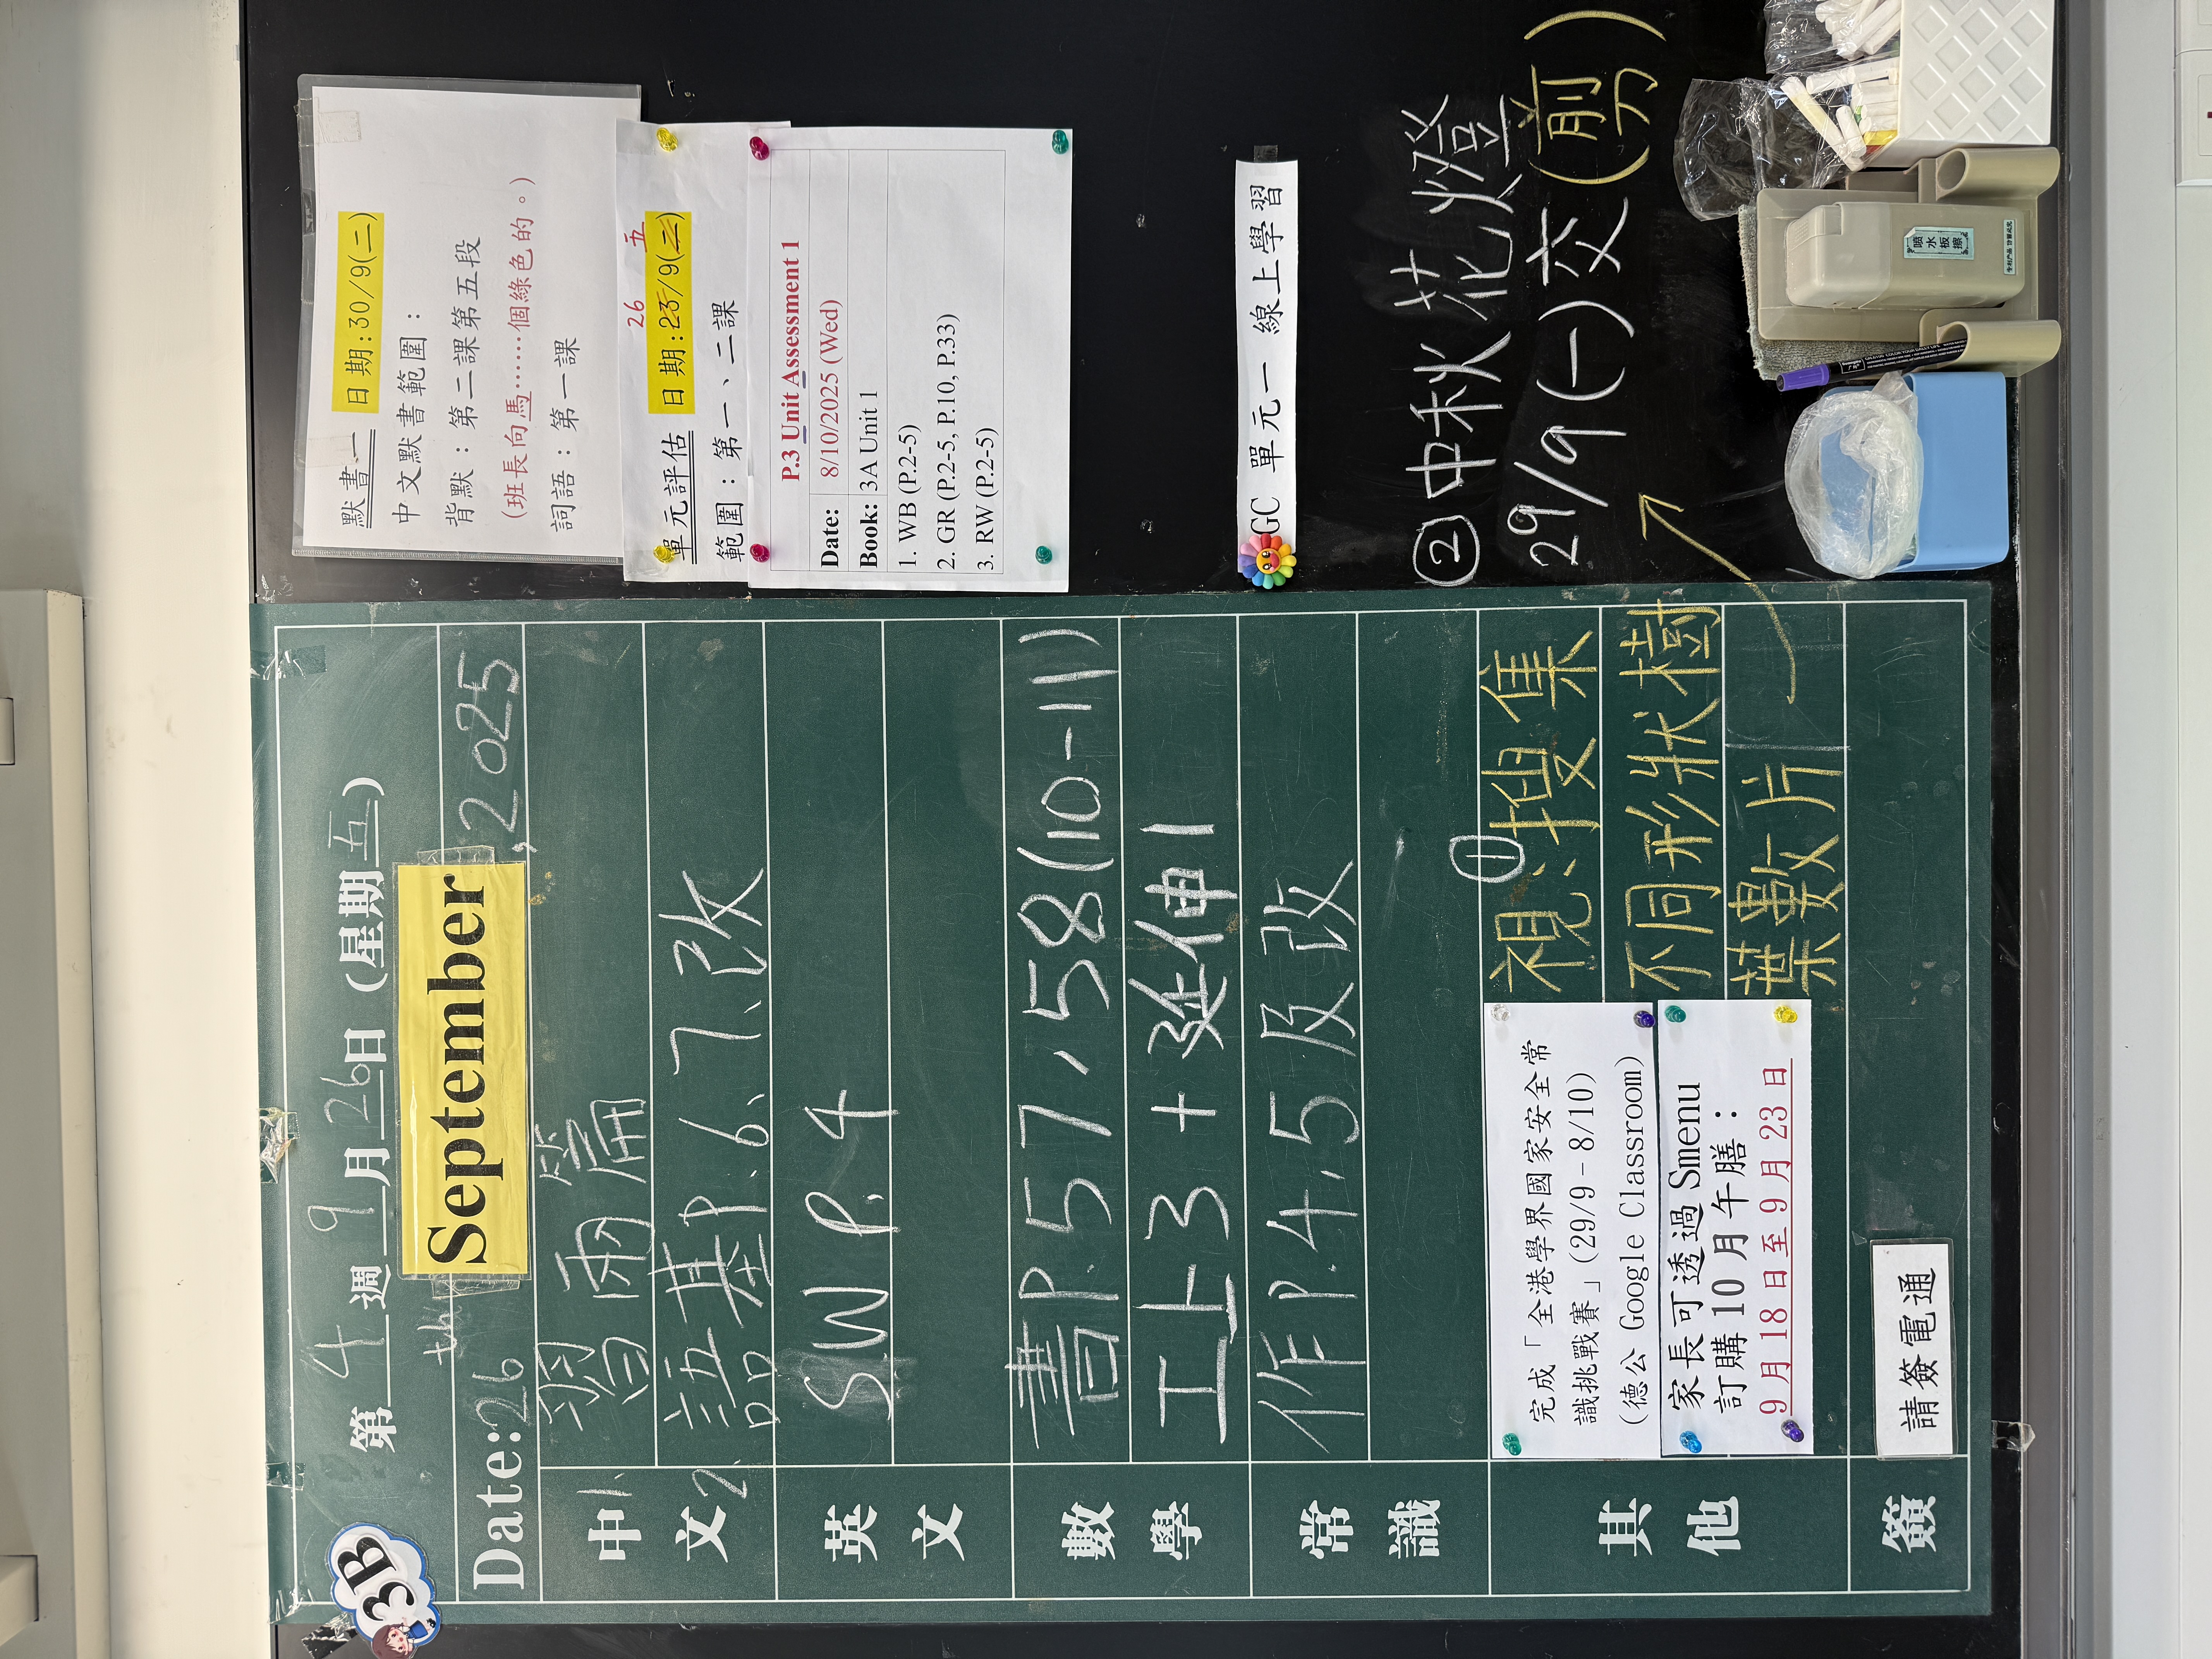 3B
第 4 週 9 月 26 日 (星期 五)
Date: 26 th September , 2025
中文
1. 習兩篇
2. 語基P.6、7、改
英文
SW P.4
數學
書P.57, 58(10-11)
工上3 + 延伸1
常識
作P.4, 5 及改
其他
完成「全港學界國家安全常
識挑戰賽」(29/9-8/10)
(德公 Google Classroom)
家長可透過 Smenu
訂購 10 月午膳：
9 月 18 日至 9 月 23 日
①
視：搜集
不同形狀樹
葉數片
簽
請簽電通
默書一 日期:30/9(二)
中文默書範圍：
背默：第二課第五段
（班長向馬……個綠色的。）
詞語：第一課
26 五
單元評估 日期:23/9(二)
範圍：第一、二課
P.3 Unit Assessment 1
Date: 8/10/2025 (Wed)
Book: 3A Unit 1
1. WB (P.2-5)
2. GR (P.2-5, P.10, P.33)
3. RW (P.2-5)
GC 單元一 線上學習
② 中秋花燈
29/9(一)交(前)
噴水板擦